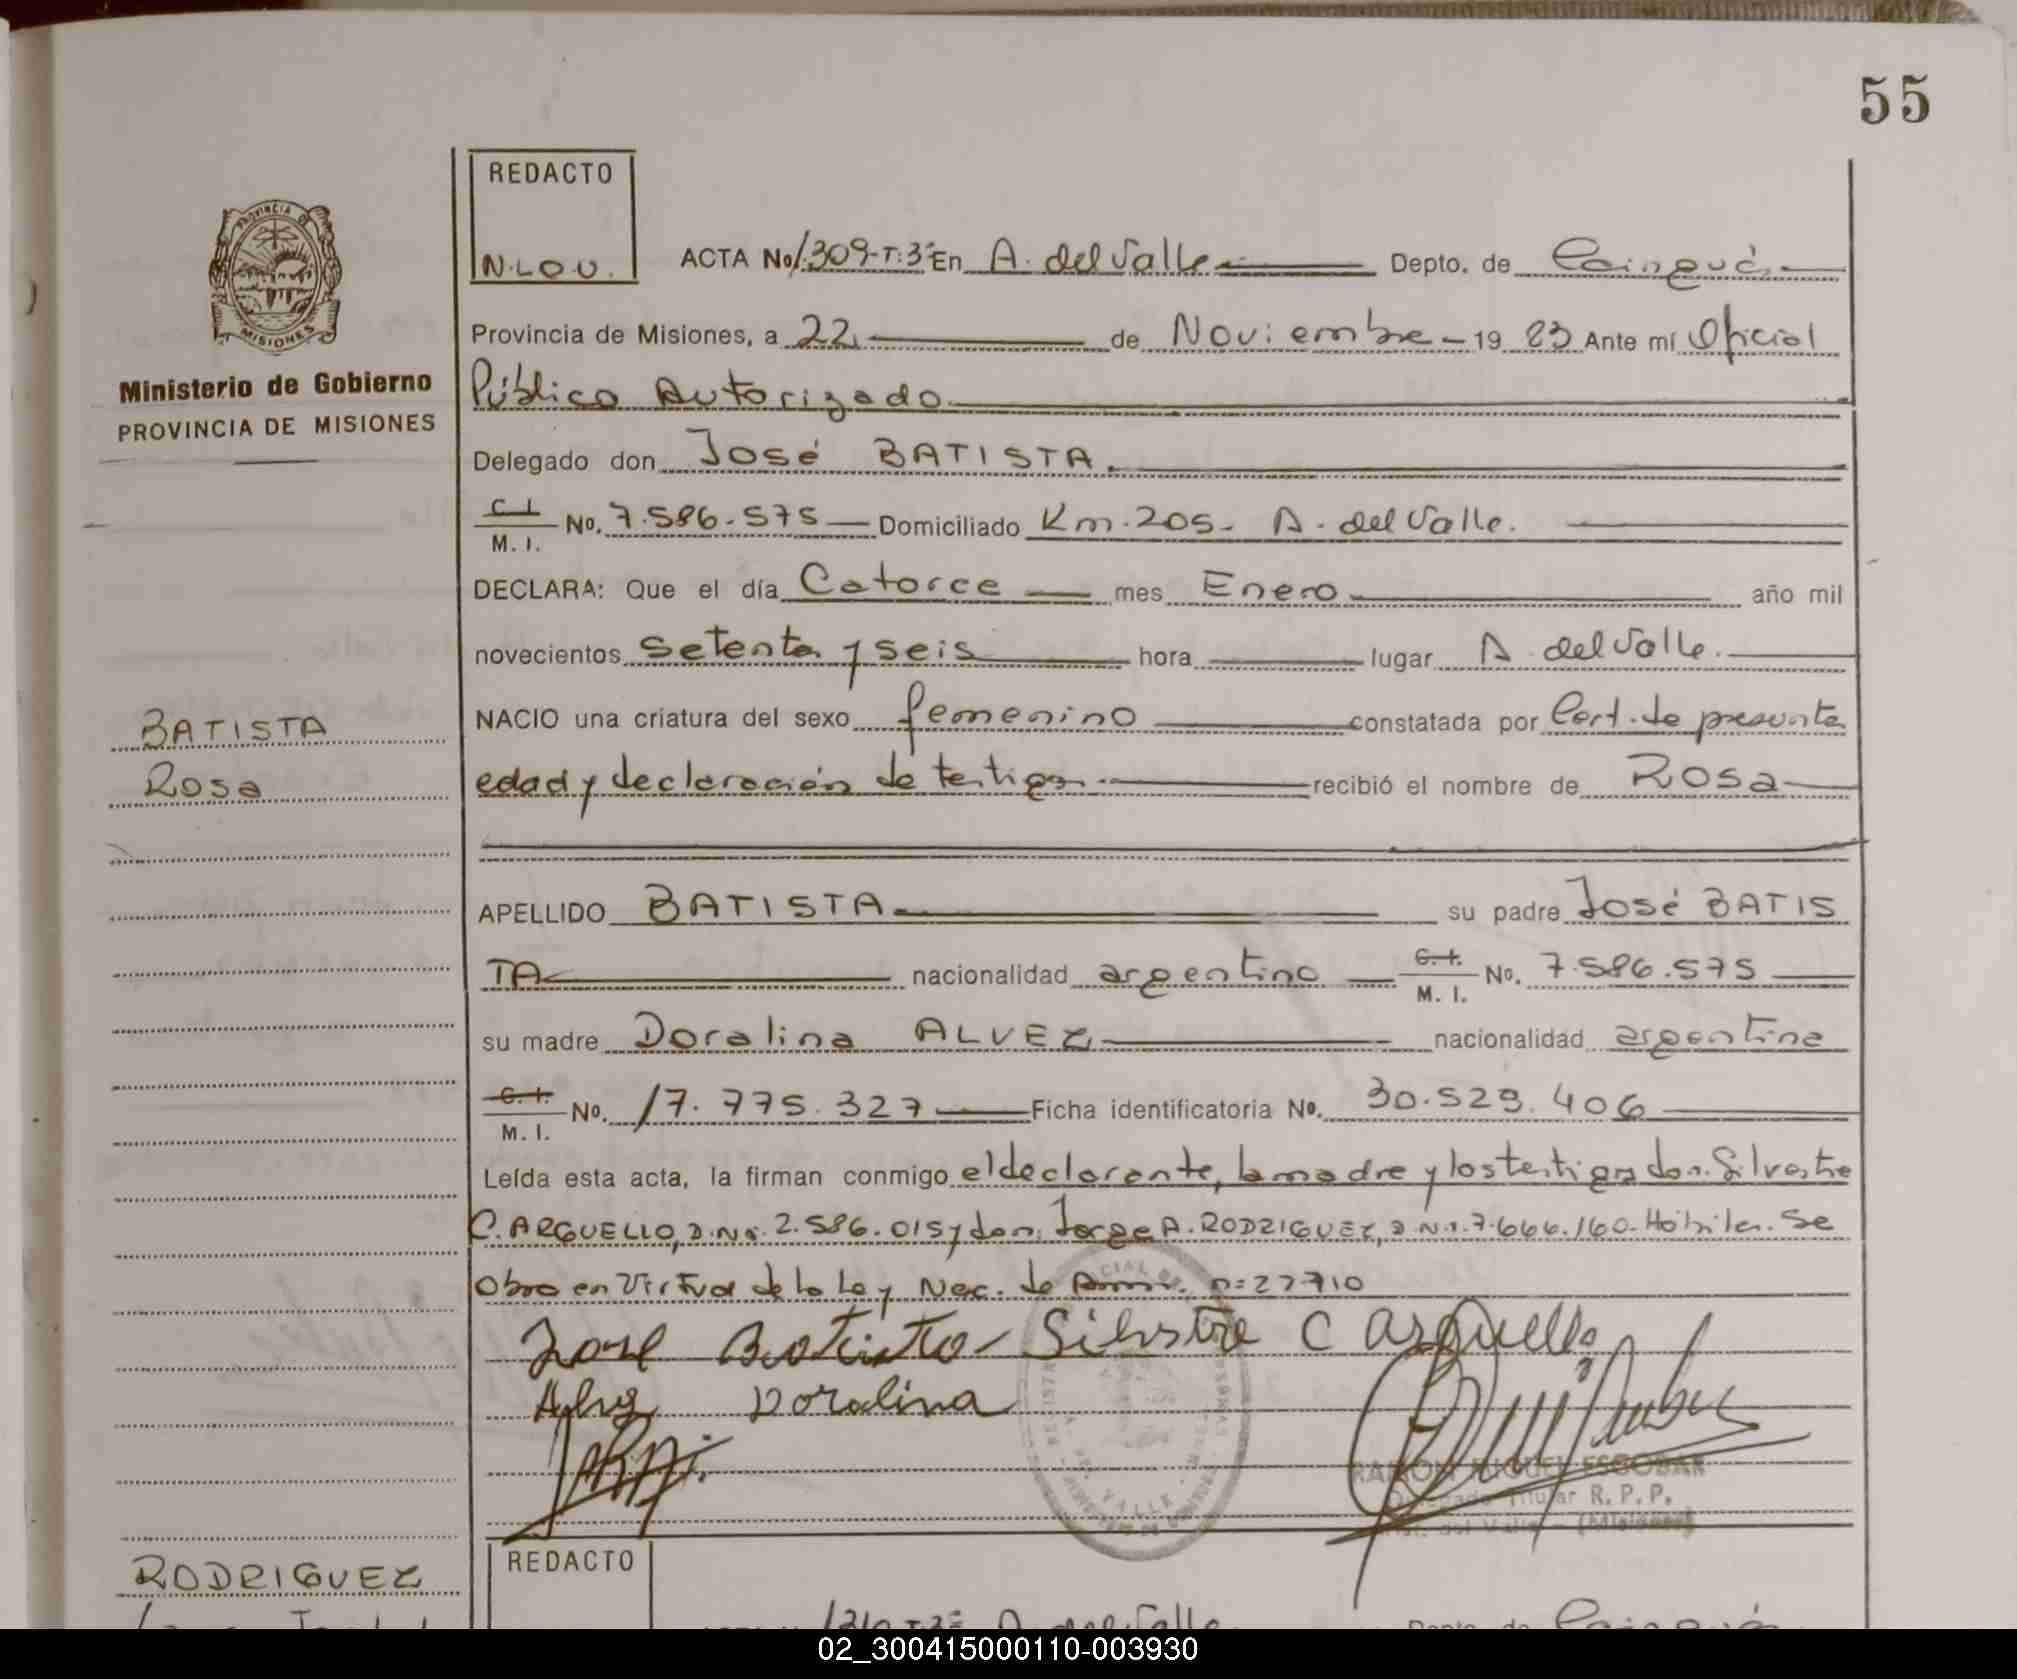 55
REDACTO
N.LO.U.
ACTA No 1309-T:3º En A. del Valle Depto. de Cainguás
Provincia de Misiones, a 22 de Noviembre 19 83 Ante mí Oficial
Público Autorizado
PROVINCIA DE
MISIONES
Ministerio de Gobierno
PROVINCIA DE MISIONES
Delegado don José BATISTA.
C. I.
M. I. No. 7.586.575 Domiciliado Km. 205. A. del Valle.
DECLARA: Que el día Catorce mes Enero año mil
novecientos setenta y seis hora lugar A. del Valle.
BATISTA
Rosa
NACIO una criatura del sexo femenino constatada por Cert. de presunta
edad y declaración de testigos recibió el nombre de Rosa
APELLIDO BATISTA su padre José BATIS
TA nacionalidad argentino C. I.
M. I. No. 7.586.575
su madre Doralina ALVEZ nacionalidad argentina
C. I.
M. I. No. 17.775.327 Ficha identificatoria No. 30.529.406
Leída esta acta, la firman conmigo el declarante, la madre y los testigos don. Silvestre
C. ARGUELLO, D.Nº. 2.586.015 y don. Jorge A. RODRIGUEZ, D.N.I. 7.666.160. Hábiles. Se
Obra en Virtud de la Ley Nac. de Amn. nº 22710
Jose Batista Silvstre C Arguello
Doralina
RAMON MIGUEL ESCOBAR
Delegado Titular R. P. P.
del Valle - (Misiones)
RODRIGUEZ
REDACTO
1310-T:3º A. del Valle Depto. de Cainguás
02_300415000110-003930